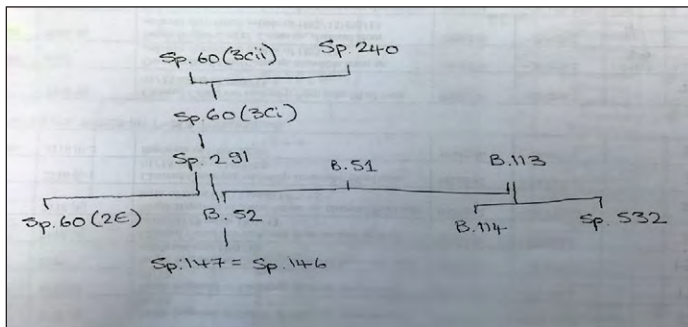 Sp.60(3cii) Sp.240
Sp.60(3Ci)
Sp.291 B.51 B.113
Sp.60(2E) B.52 B.114 Sp.532
Sp.147 = Sp.146